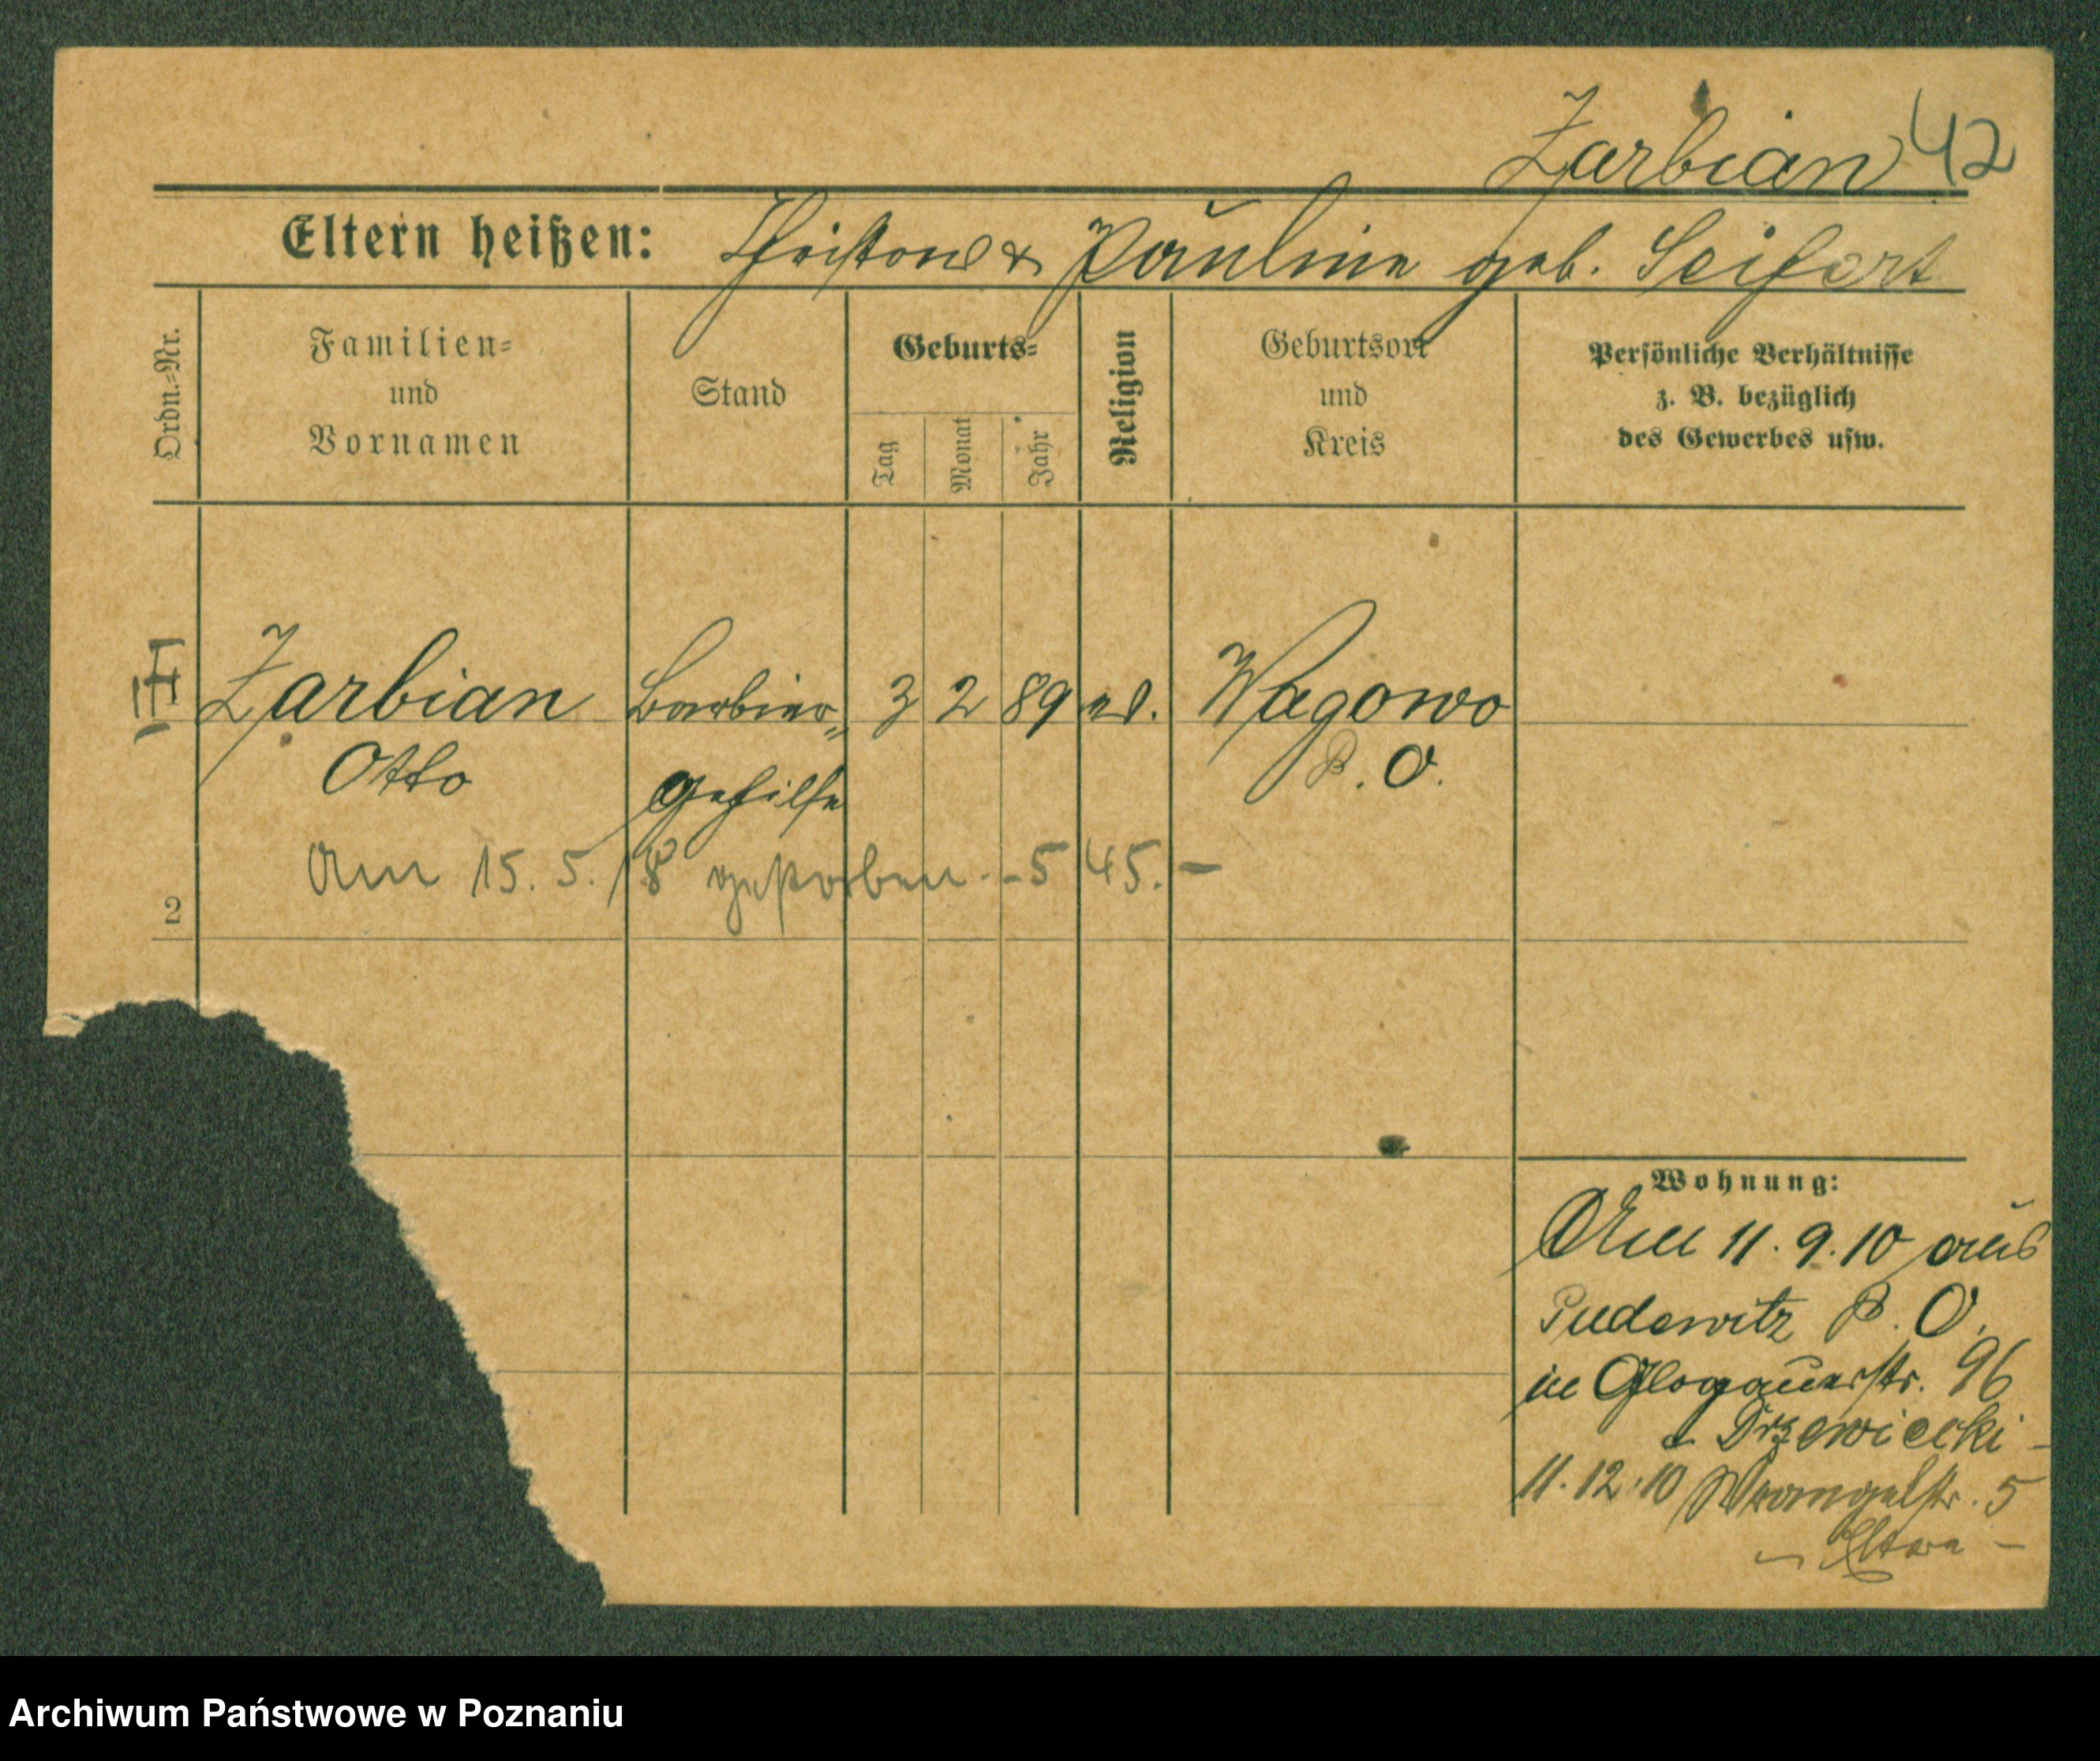 Zarbian 42
Eltern heißen: Christian & Pauline geb. Seifert
Ordn.=Nr.
Familien=
und
Vornamen
Stand
Geburts=
Tag
Monat
Jahr
Religion
Geburtsort
und
Kreis
Persönliche Verhältnisse
z. B. bezüglich
des Gewerbes usw.
Zarbian Barbier= 3 2 89 ev. Wagowo
Otto Gehilfe P. O.
Am 15. 5. 18 gestorben. - 545. -
2
Wohnung:
Am 11. 9. 10 aus
Pudewitz P. O.
in Glogauerstr. 96
Drzewiecki -
11. 12. 10 Wrangelstr. 5
- Eltern -
Archiwum Państwowe w Poznaniu